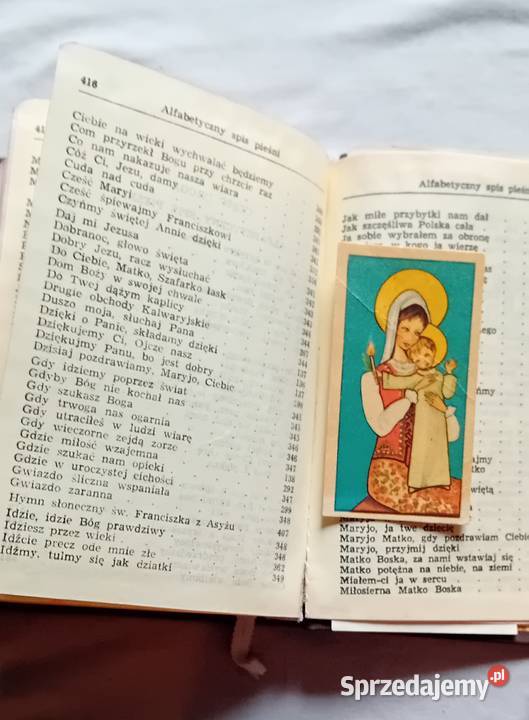 416
Alfabetyczny spis pieśni
Ciebie na wieki wychwalać będziemy
Com przyrzekł Bogu przy chrzcie raz
Co nam nakazuje nasza wiara
Cóż Ci, Jezu, damy
Cuda nad cuda
Cześć Maryi
Cześć śpiewajmy Franciszkowi
Czyńmy świętej Annie dzięki
Daj mi Jezusa
Dobranoc, głowo święta
Dobry Jezu, racz wysłuchać
Do Ciebie, Matko, Szafarko łask
Dom Boży w swojej chwale
Do Twej dążym kaplicy
Drugie obchody Kalwaryjskie
Duszo moja, słuchaj Pana
Dzięki o Panie, składamy dzięki
Dziękujemy Ci, Ojcze nasz
Dziękujmy Panu, bo jest dobry
Dzisiaj pozdrawiamy, Maryjo, Ciebie
Gdy idziemy poprzez świat
Gdyby Bóg nie kochał nas
Gdy szukasz Boga
Gdy trwoga nas ogarnia
Gdy utraciłeś w ludzi wiarę
Gdy wieczorne zejdą zorze
Gdzie miłość wzajemna
Gdzie szukać nam opieki
Gdzie w uroczystej cichości
Gwiazdo śliczna wspaniała
Gwiazdo zaranna
Hymn słoneczny św. Franciszka z Asyżu 348
Idzie, idzie Bóg prawdziwy 407
Idziesz przez wieki 348
Idźcie precz ode mnie złe 346
Idźmy, tulmy się jak dziatki 362
349
Alfabetyczny spis pieśni
Jak miłe przybytki nam dał
Jak szczęśliwa Polska cała
Ja sobie wybrałem za obronę
w kogo ja wierzę
Maryjo, ja twe dziecię
Maryjo Matko, gdy pozdrawiam Ciebie
Maryjo, przyjmij dzięki
Matko Boska, za nami wstawiaj się
Matko potężna na niebie, na ziemi
Miałem-ci ja w sercu
Miłosierna Matko Boska
Sprzedajemy.pl